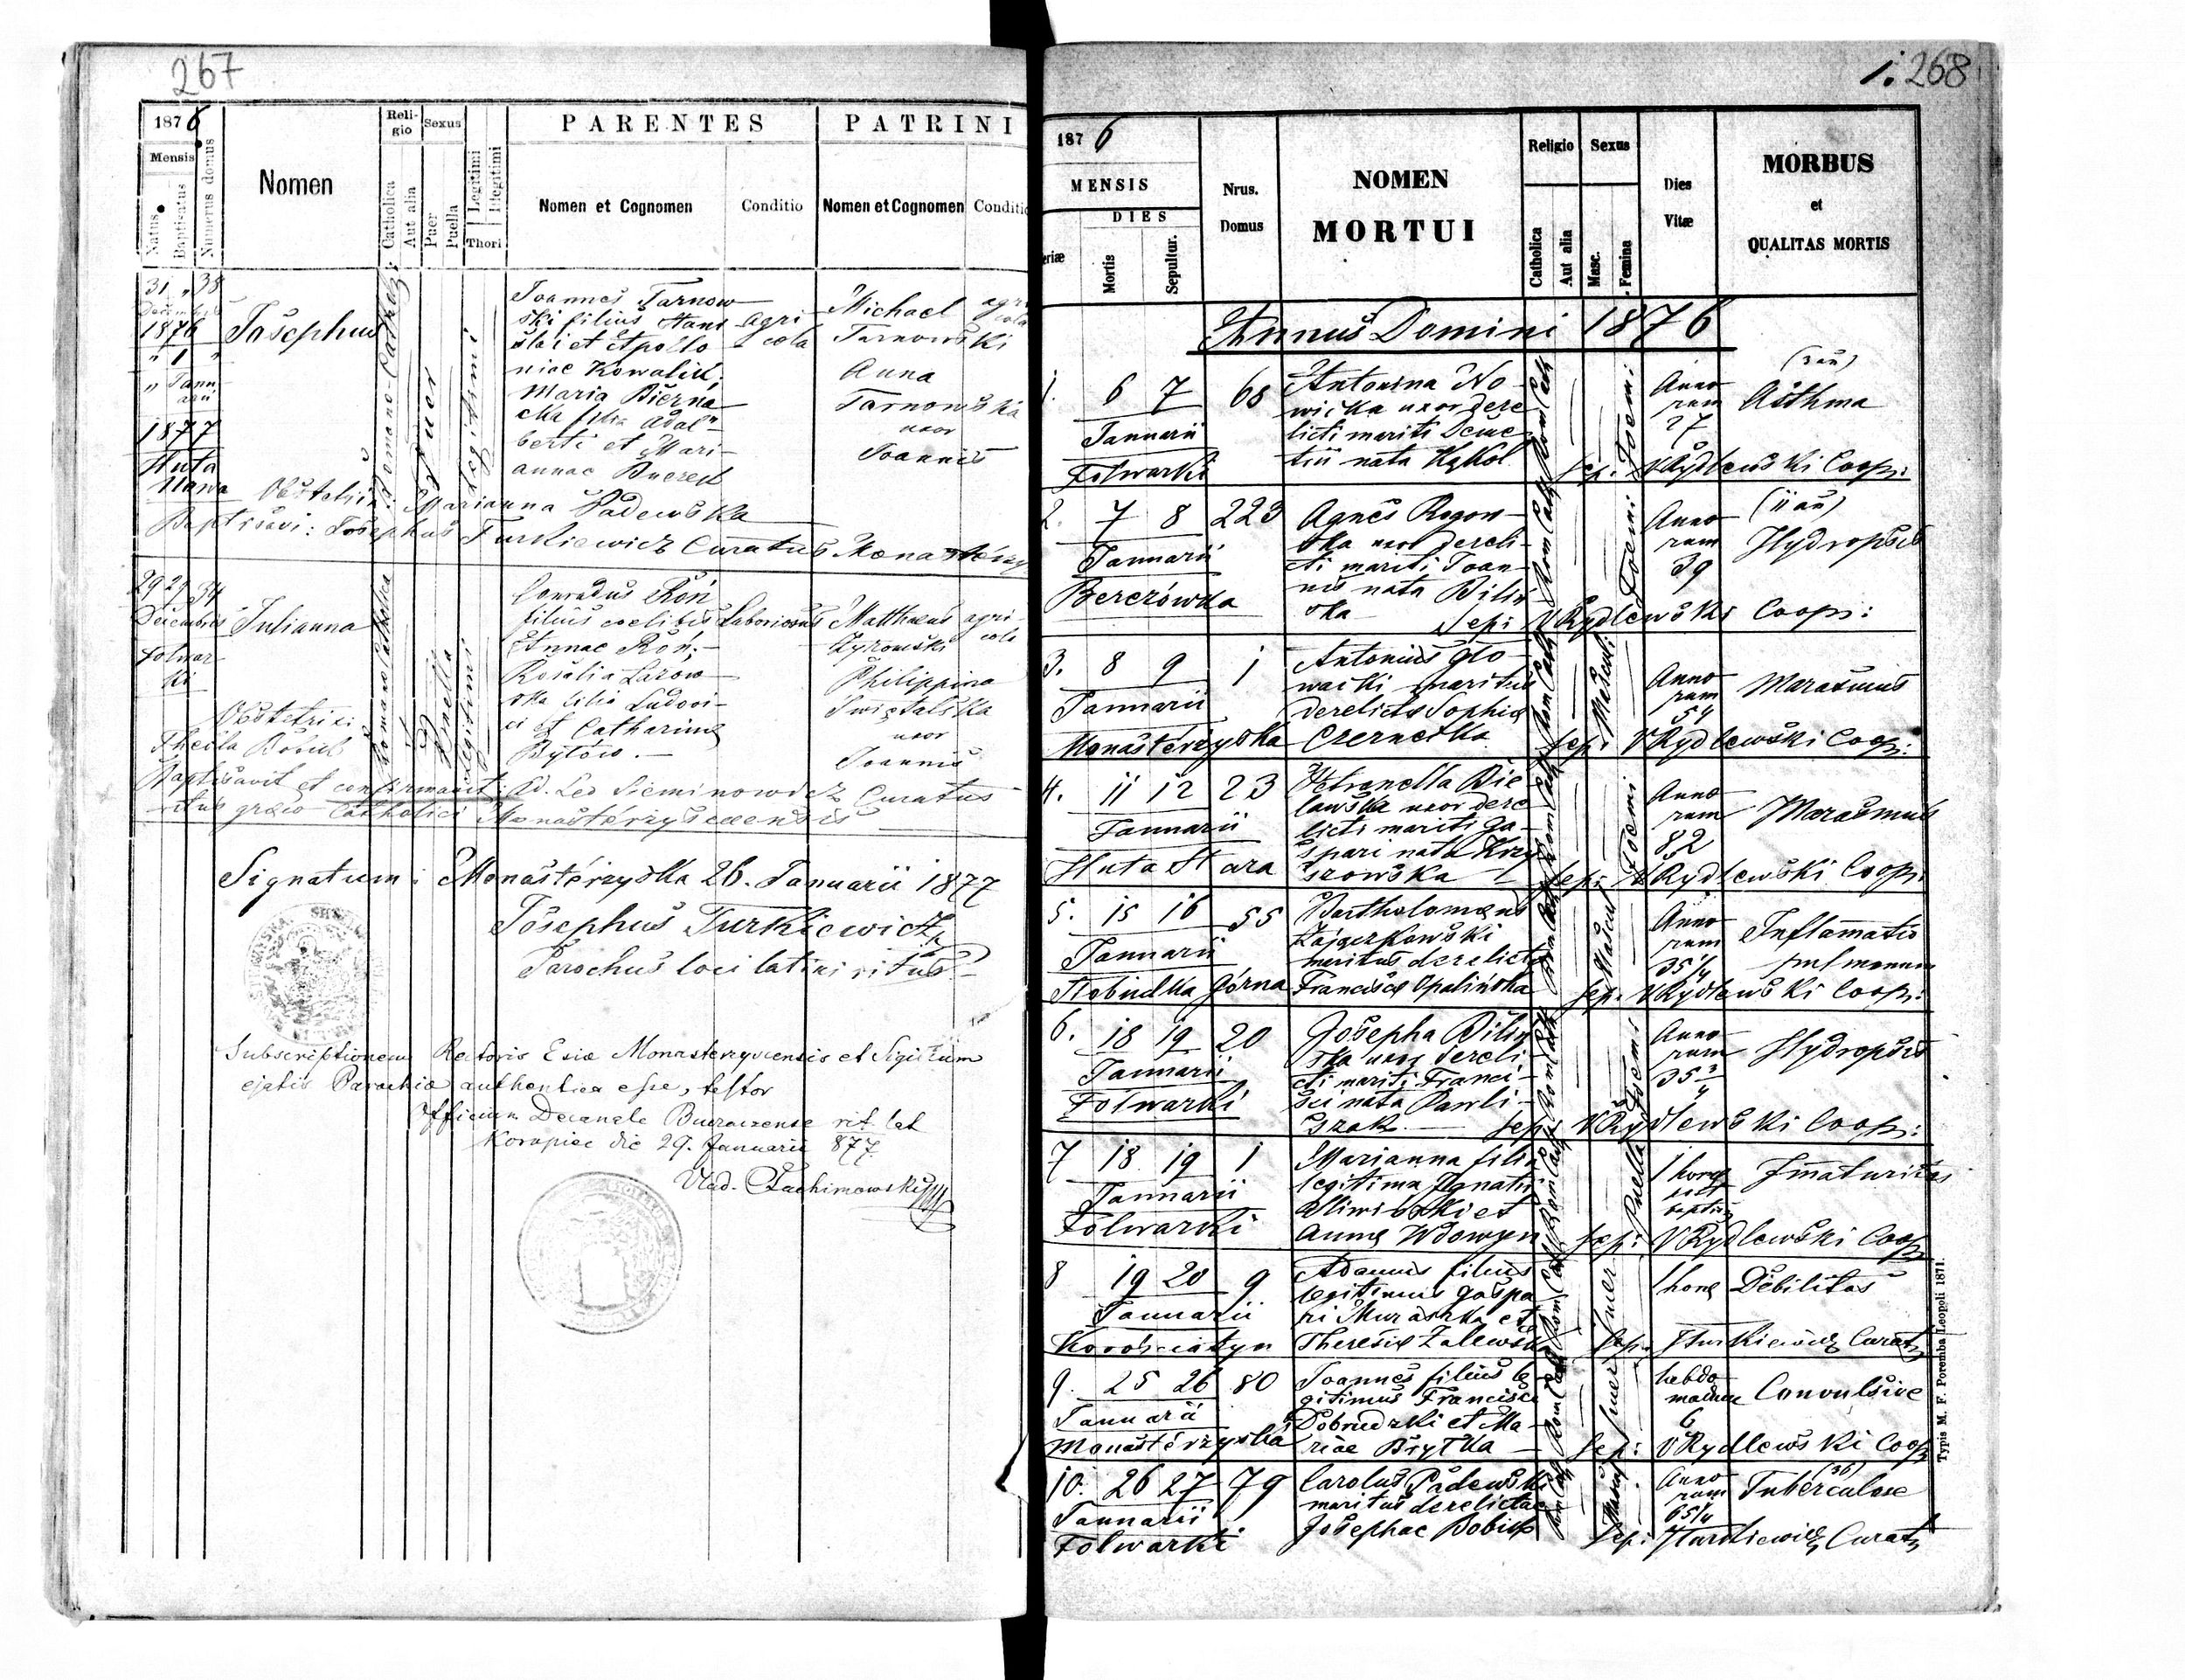 267
1876
Mensis
Natus
Baptisatus
Numerus domus
Nomen
Religio
Catholica
Aut alia
Sexus
Puer
Puella
Legitimi
Illegitimi
Thori
PARENTES
Nomen et Cognomen
Conditio
PATRINI
Nomen et Cognomen
Conditio
31 " 38
Decembris
1876
" 1 "
" Janu
arii
1877
Huta
Nowa
Josephus
Romano-Catholica
puer
Legitimi
Joannes Tarnow
ski filius Stani
slai et Apollo
niae Kowalik,
Maria Bierna
cka filia Adal
berti et Mari-
annae
agri
cola
Michael
Tarnowski
Anna
Tarnowska
uxor
Joannis
agri
cola
Obstetrix: Marianna Padewska
Baptisavi: Josephus Turkiewicz Curatus
29 29 34
Decembris
Folwar
ki
Julianna
Romano Catholica
Puella
Legitimi
Conradus Róń
filius coelibis
Annae Róń;
Rosalia Lazow
ska filia Ludovi-
ci et Catharina
Bytów.
Laboriosus
Matthaeus
Zyromski
Philippina
Świetalska
uxor
Joannis
agri-
cola
Obstetrix:
Thecla Bobick
Baptisavit et confirmavit: Ad. Leo Sieminowicz Curatus
ritus graeco Catholici Monasterzyscensis
Signatum: Monasterzyska 26. Januarii 1877
Josephus Turkiewicz
Parochus loci latini ritus
Subscriptionem Rectoris Eccliae Monasterzyscensis et Sigillum
ejatis Parochiae authentica esse, testor
Officium Decanale Buczacense rit. lat
Koropiec die 29. Januarii 877
1. 268
1876
MENSIS
DIES
Mortis
Sepultur.
Nrus.
Domus
NOMEN
MORTUI
Religio
Catholica
Aut alia
Sexus
Masc.
Femina
Dies
Vitæ
MORBUS
et
QUALITAS MORTIS
Annus Domini 1876
1. 6 7 68
Januarii
Folwarki
Antonina No
wicka uxor dere
licti mariti Deme
trii nata Kąkol
Rom Cath
Foemi
Anno
rum
27
Asthma
Sep: VRydlewski Coop:
2. 7 8 223
Januarii
Berezówka
Agnes Rogow
ska uxor dereli-
cti mariti Joan-
nis nata Biliń
ska
Rom Cath
Foemi
Anno
rum
39
Hydropsis
Sep: VRydlewski Coop:
3. 8 9 1
Januarii
Monasterzyska
Antonius Gło
wacki maritus
derelictae Sophiae
Czernecka
Rom Cath
Mascul:
Anno
rum
54
Marasmus
Sep: VRydlewski Coop:
4. 11 12 23
Januarii
Huta Stara
Petronella Bie
lawska uxor dere
licti mariti Ga-
spari nata Krzy
szowska
Rom Cath
Foemi
Anno
rum
82
Marasmus
Sep: VRydlewski Coop:
5. 15 16 55
Januarii
Słobudka Górna
Bartholomaeus
Zajączkowski
maritus derelictae
Franciscae Opalińska
Rom Cath
Mascul
Anno
rum
35 1/4
Inflamatio
pulmonum
Sep. VRydlewski Coop:
6. 18 19 20
Januarii
Folwarki
Josepha Biliń
ska uxor dereli-
cti mariti Franci-
sci nata Pawli-
szak
Rom Cath
Foemi
Anno
rum
35 3/4
Hydropsis
Sep: VRydlewski Coop:
7 18 19 1
Januarii
Folwarki
Marianna filia
legitima Ignatii
Kliwiński et
Annae Wdowyen
Rom Cath
Puella
1 hora
Imaturitas
Sep: VRydlewski Coop
8 19 20 9
Januarii
Korościatyn
Adamus filius
legitimus Gaspa
ri Muraszka et
Theresiae Zalewska
Rom Cath
Puer
1 hora
Debilitas
Sep: JTurkiewicz Curatus
9. 25 26 80
Januarii
Monasterzyska
Joannes filius le
gitimus Francisci
Dobrudzki et Ma
riae Brytka
Rom Cath
Puer
hebdo
madae
6
Convulsive
Sep: VRydlewski Coop
10. 26 27 79
Januarii
Folwarki
Carolus Padewski
maritus derelictae
Josephae Bobick
Rom Cath
Mascul
Anno
rum
65 1/4
Tuberculose
Sep: JTurkiewicz Curatus
Typis M. F. Poremba Leopoli 1871.